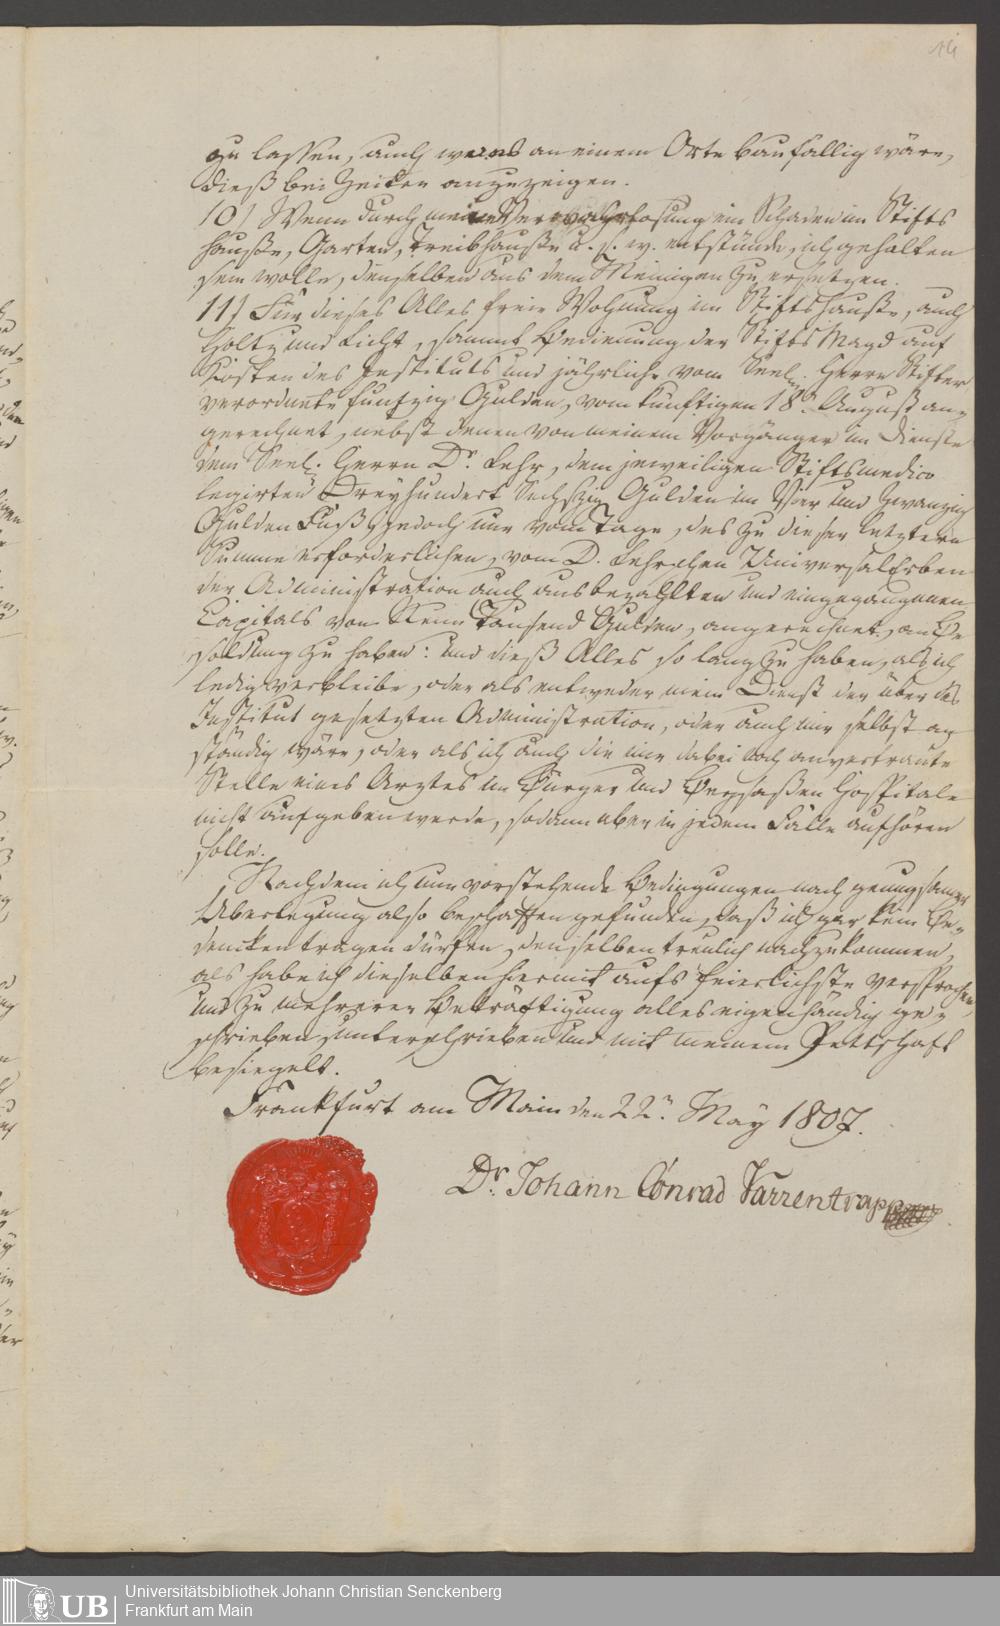 14
zu lassen, auch wenns an einem Orte baufällig wäre,
dieß bei Zeiten anzuzeigen.
10) Wenn durch meine Verwahrlosung ein Schaden im Stifts
hauße, Garten, Treibhauße u. s. w. entstünde, ich gehalten
seyn wolle, denselben aus dem Meinigen zu ersetzen.
11) Für dieses Alles freie Wohnung im Stiftshauße, auch
Holtz und Licht, sammt Bedienung der Stifts Magd auf
Kosten des Instituts und jährliche vom Seel. Herrn Stifter
verordnete funfzig Gulden, vom künftigen 18. August an
gerechnet, nebst denen von meinem Vorgänger im Dienste
dem Seel. Herrn Dr. Lehr, dem jeweiligen Stiftsmedico
legirten Dreyhundert Sechszig Gulden im Vier und Zwanzig
Gulden Fuß (jedoch nur vom Tage, des zu dieser letztern
Summe erforderlichen, vom D. Lehrschen Universal Erben
der Administration auch ausbezahlten und eingegangenen
Capitals von Neun Tausend Gulden, angerechnet, an Be
soldung zu haben: und dieß Alles so lang zu haben, als ich
ledig verbleibe, oder als entweder mein Dienst der über das
Institut gesetzten Administration, oder auch mir selbst an
ständig wäre, oder als ich auch die mir dabei noch anvertraute
Stelle eines Arztes im Bürger und Beysaßen Hospitale
nicht aufgeben werde, sodann aber in jedem Falle aufhören
solle.
Nachdem ich nun vorstehende Bedingungen nach genugsamer
Überlegung also beschaffen gefunden, daß ich gar kein Be-
dencken tragen dürfen, denselben treulich nachzukommen,
als habe ich dieselben hiermit aufs feierlichste versprochen,
und zu mehrerer Bekräftigung alles eigenhändig ge-
schrieben, unterschrieben und mit meinem Pettschaft
besiegelt.
Frankfurt am Main den 22n. May 1807.
Dr. Johann Conrad Varrentrapp
UB
Universitätsbibliothek Johann Christian Senckenberg
Frankfurt am Main